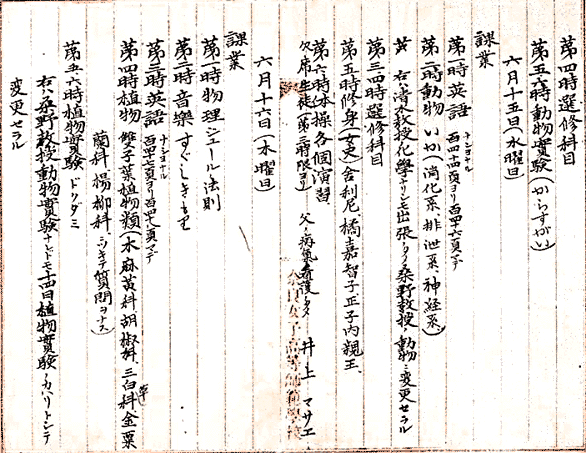 第四時選修科目
第五六時動物實験(からすがい)
六月十五日(水曜日)
課業
第一時英語 ナショナル 百四十四頁ヨリ百四十六頁マデ
第二時動物 いか(消化系、排泄系、神経系)
右ハ 教授化學ナリシモ出張ノタメ桑野教授ノ動物ニ変更セラル
第三四時選修科目
第五時修身(女史)舎利尼、橘嘉智子正子内親王、
第六時体操各個演習
欠席生徒(第三時限ヨリ) 父ノ病氣看護ノタメ 井上マサエ
奈良女子高等師範學校
六月十六日(木曜日)
課業
第一時物理 ジュール法則
第二時音樂 すぐしきもを
第三時英語 ナショナル 百四十七頁ヨリ百四十 頁マデ
第四時植物 雙子葉植物類(木麻黄科、胡椒科、三白草科、金粟
蘭科、楊柳科ニツキテ質問ヲナス
第五六時植物實験 ドクダミ
右ハ桑野教授動物實験ナレドモ十四日植物實験ノカハリトシテ
変更セラル